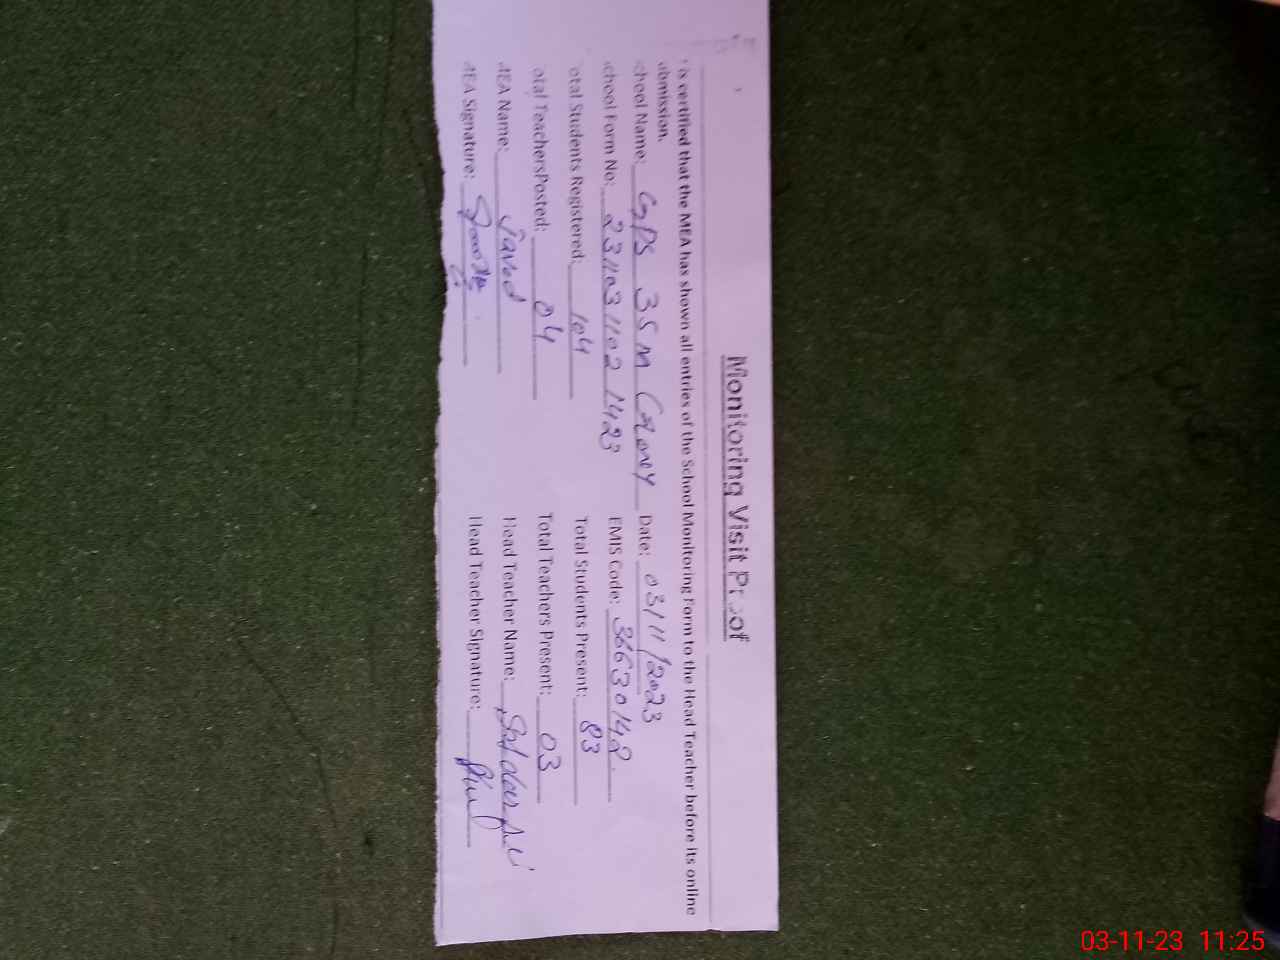 Monitoring Visit Proof
is certified that the MEA has shown all entries of the School Monitoring Form to the Head Teacher before its online
ubmission.
chool Name: GPS 35 M Coloney Date: 03/11/2023
chool Form No: 23110311021423 EMIS Code: 36630142
otal Students Registered: 104 Total Students Present: 83
otal TeachersPosted: 04 Total Teachers Present: 03
MEA Name: Javed Head Teacher Name: Safdar Ali
MEA Signature: Head Teacher Signature:
03-11-23 11:25